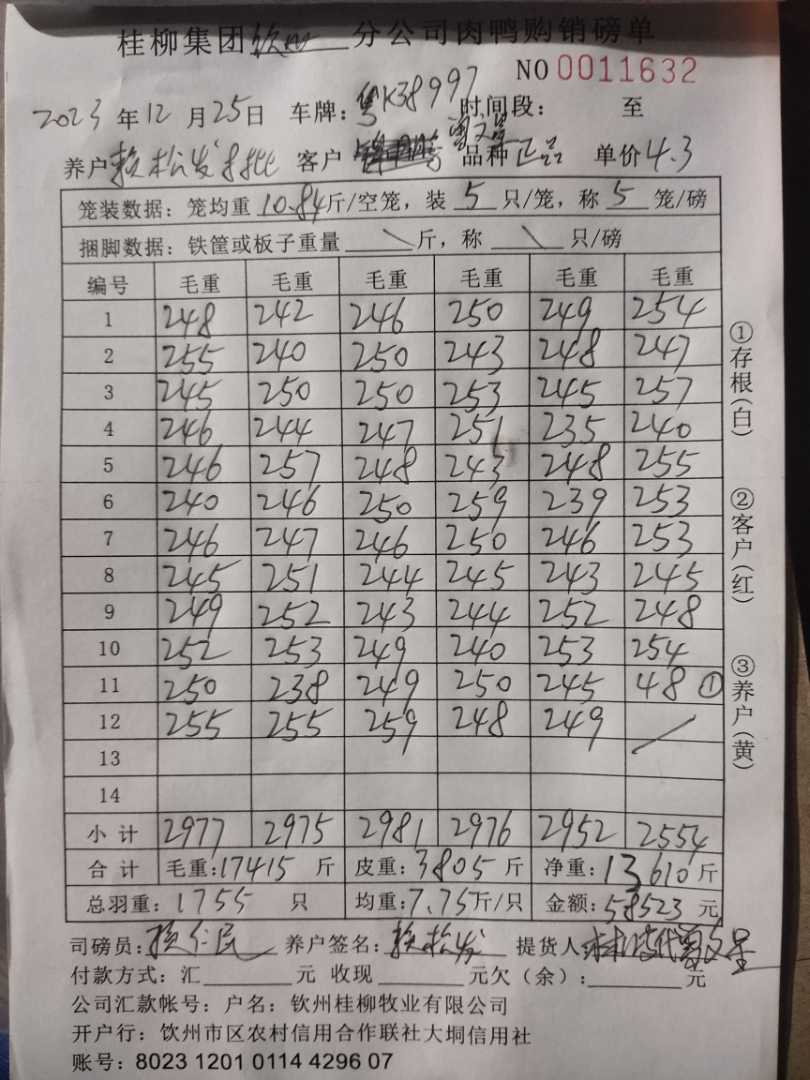 桂柳集团钦州分公司肉鸭购销磅单
NO 0011632
2023年12月25日 车牌：粤K38997 时间段： 至
养户赖松发 客户 品种正品 单价4.3
笼装数据：笼均重10.84斤/空笼，装5只/笼，称5笼/磅
捆脚数据：铁筐或板子重量\斤，称\只/磅
编号 毛重 毛重 毛重 毛重 毛重 毛重
1 248 242 246 250 249 254
2 255 240 250 243 248 247
3 245 250 250 253 245 257
4 246 244 247 251 235 240
5 246 257 248 243 248 255
6 240 246 250 259 239 253
7 246 247 246 250 246 253
8 245 251 244 245 243 245
9 249 252 243 244 252 248
10 252 253 249 240 253 254
11 250 238 249 250 245 48①
12 255 255 259 248 249 /
13
14
小计 2977 2975 2981 2976 2952 2554
合计 毛重：17415斤 皮重：3805斤 净重：13610斤
总羽重：1755只 均重：7.75斤/只 金额：58523元
司磅员： 养户签名：赖松发 提货人
付款方式：汇____元 收现____元欠（余）：____元
公司汇款帐号：户名：钦州桂柳牧业有限公司
开户行：钦州市区农村信用合作联社大垌信用社
账号：8023 1201 0114 4296 07
①存根（白）
②客户（红）
③养户（黄）